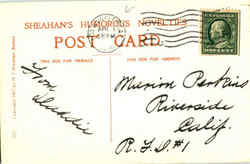 SHEAHAN'S HUMOROUS NOVELTIES
POST CARD
THIS SIDE FOR MESSAGE
THIS SIDE FOR ADDRESS
From
Daddie
Marion Perkins
Riverside
Calif.
R.F.D #1